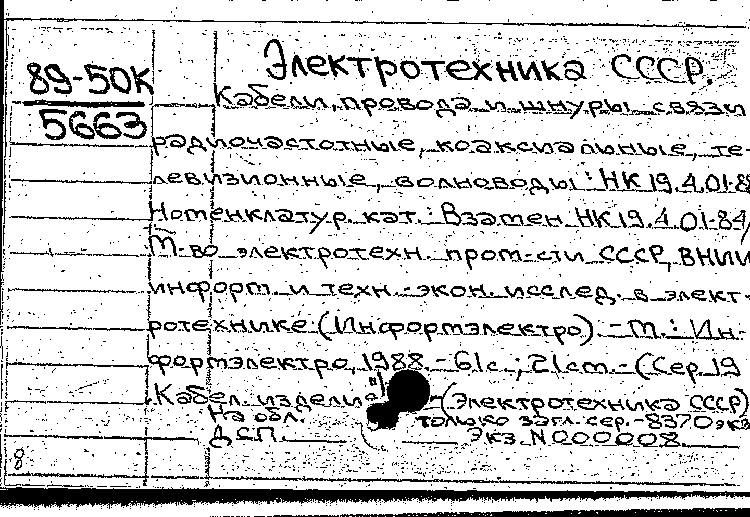 89-50К
5663
Электротехника СССР.
Кабели, провода и шнуры связи
радиочастотные, коаксиальные, те-
левизионные, волноводы: НК 19.4.01-88
Номенклатур. кат.: Взамен НК 19.4.01-84/
М-во электротехн. пром-сти СССР, ВНИИ
информ. и техн.-экон. исслед. в элект-
ротехнике (Информэлектро). - М.: Ин-
формэлектро, 1988. - 61с.; 21см. - (Сер. 19
Кабел. изделия / (Электротехника СССР)
На обл. только загл. сер. - 8370 экз
ДСП. Экз. N 000008.
8